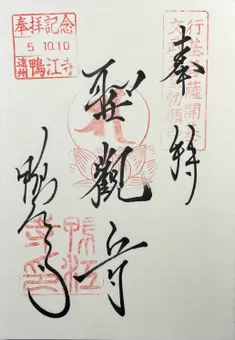 奉拝
行基菩薩開基
聖觀音
奉拝記念
5 10.10
遠州 鴨江寺
鴨江寺
鴨江
寺印